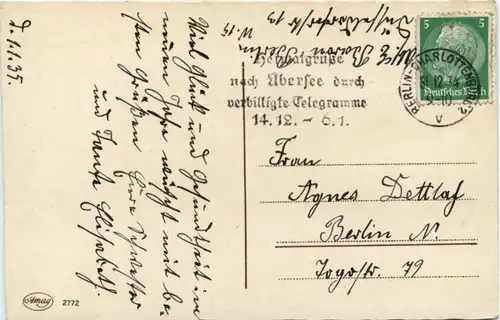 d. 1.1.35.
Viel Glück und Gesundheit im
neuen Jahr wünscht mit be-
sten Grüßen Eure Schwester
und Tante Elisabeth.
W. 15
Düsseldorferstr 13
Berlin
Heimatgrüße
nach Übersee durch
verbilligte Telegramme
14.12. - 6.1.
BERLIN-CHARLOTTENBURG 2
31.12.34
V
5 5
Deutsches Reich
Frau
Agnes Dettlaf
Berlin N.
Togostr. 79
Amag 2772